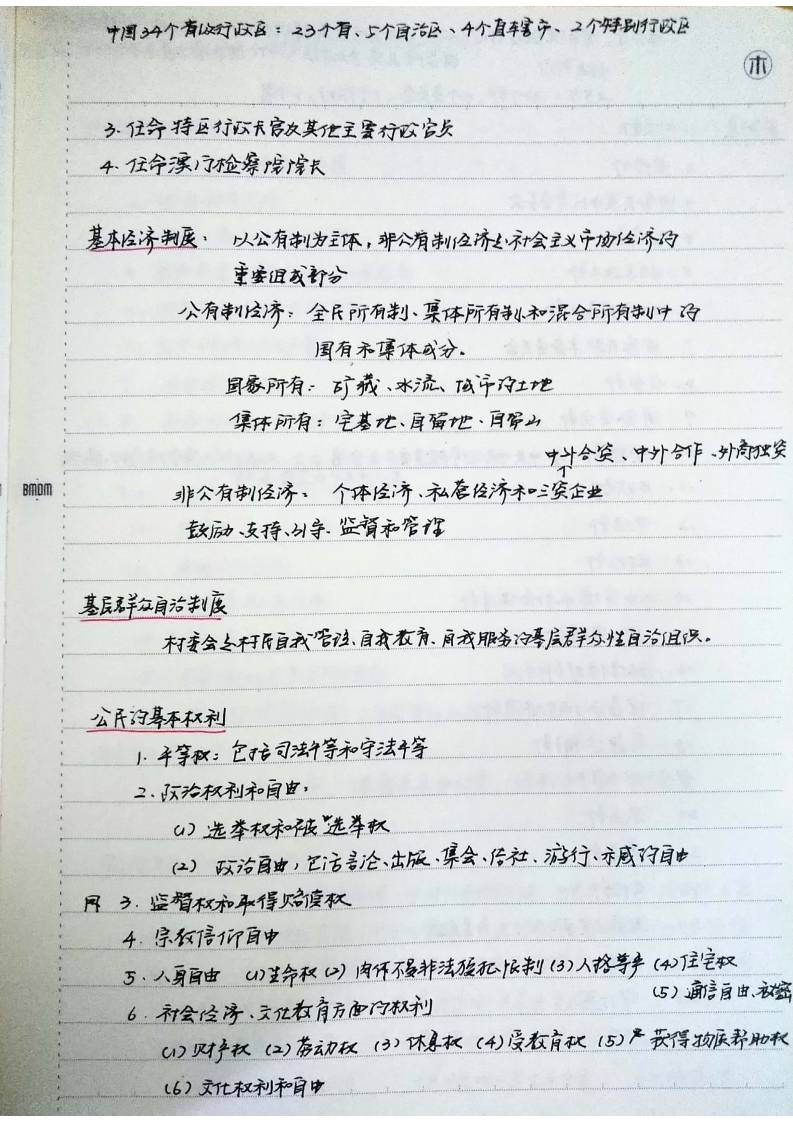 中国34个省级行政区：23个省、5个自治区、4个直辖市、2个特别行政区
木
3. 任命特区行政长官及其他主要行政官员
4. 任命澳门检察院院长
基本经济制度： 以公有制为主体，非公有制经济是社会主义市场经济的
重要组成部分
公有制经济：全民所有制、集体所有制和混合所有制中的
国有和集体成分。
国家所有：矿藏、水流、城市的土地
集体所有：宅基地、自留地、自留山
中外合资、中外合作、外商独资
BMDM
非公有制经济： 个体经济、私营经济和三资企业
鼓励、支持、引导、监督和管理
基层群众自治制度
村委会是村民自我管理、自我教育、自我服务的基层群众性自治组织。
公民的基本权利
1. 平等权：包括司法平等和守法平等
2. 政治权利和自由：
(1) 选举权和被选举权
(2) 政治自由，包括言论、出版、集会、结社、游行、示威的自由
3. 监督权和取得赔偿权
4. 宗教信仰自由
5. 人身自由 (1)生命权 (2) 肉体不受非法强扣限制 (3)人格尊严 (4)住宅权
(5) 通信自由、秘密
6. 社会经济、文化教育方面的权利
(1) 财产权 (2) 劳动权 (3) 休息权 (4) 受教育权 (5) 获得物质帮助权
(6) 文化权利和自由